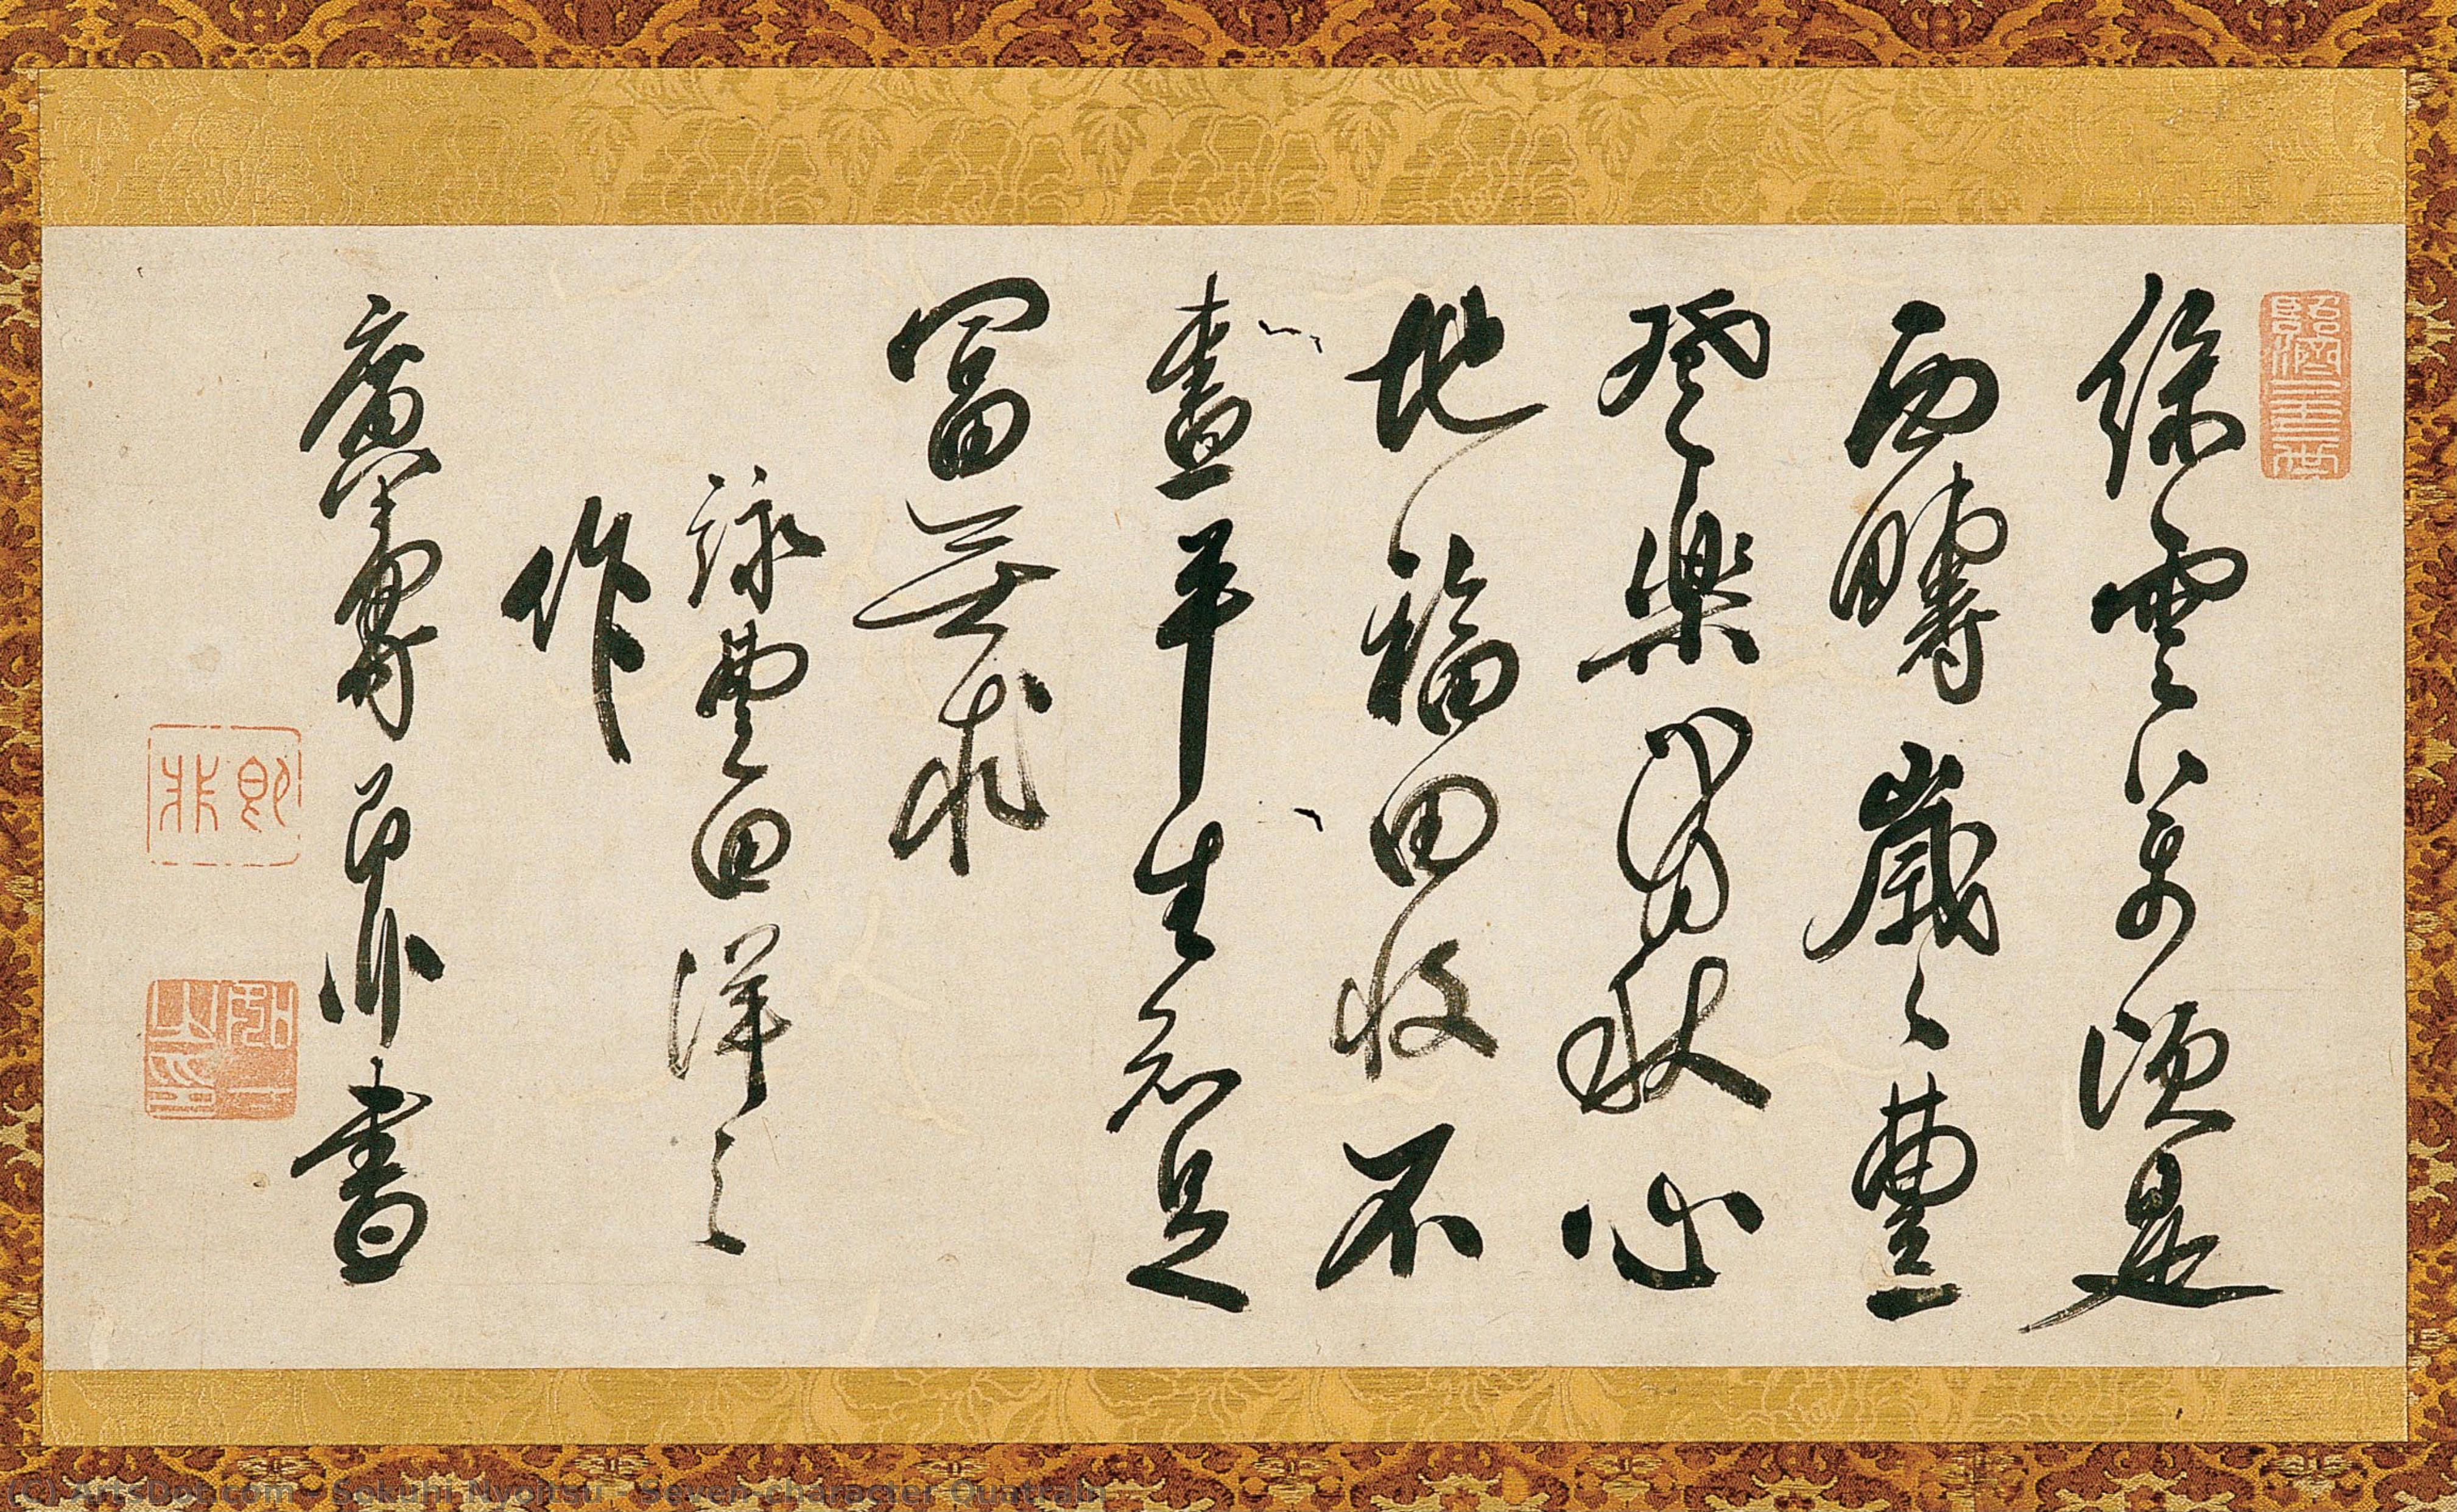 綠雲萬頃是
西疇歲〻豐
登樂有秋心
地福田收不
盡平生知足
富無求
詠豐田洋之
作
廣壽即非書
即非
(C) ArtsDot.com - Sokuhi Nyoitsu - Seven-character Quatrain